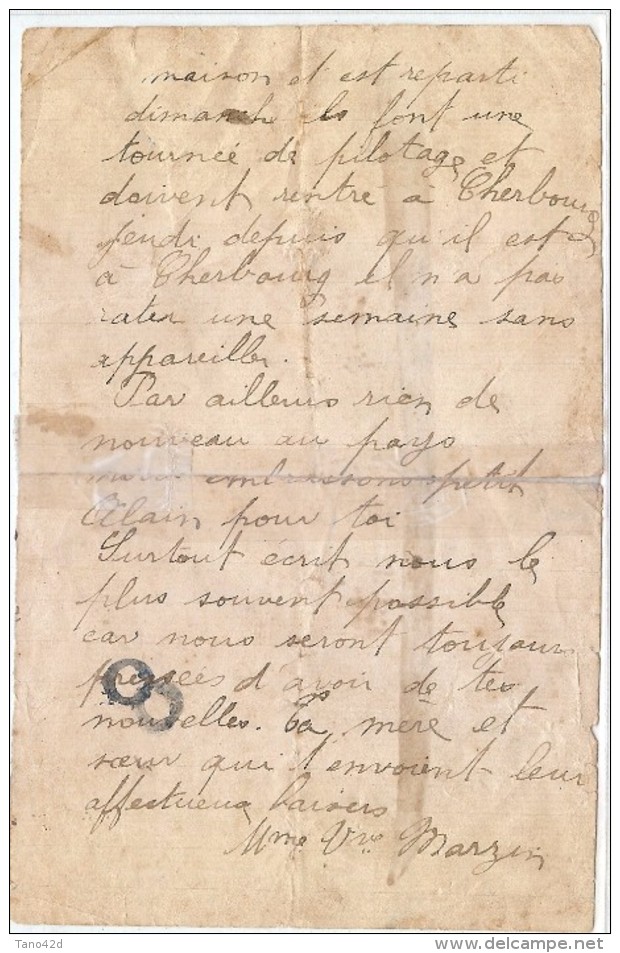 maison et est reparti
dimanch ils font une
tourneé de pilotage et
doivent rentré à Cherbourg
jeudi depuis qu'il est
à Cherbourg il n'a pas
rater une semaine sans
appareiller.
Par ailleurs rien de
nouveau au pays
nous embrassons petit
Alain pour toi
Surtout écrit nous le
plus souvent possible
car nous seront toujours
pressées d'avoir de tes
nouvelles. Ta mère et
sœur qui t'envoient leur
affectueux baisers
Mme Vve Marzin
Tano42d
delcampe.net